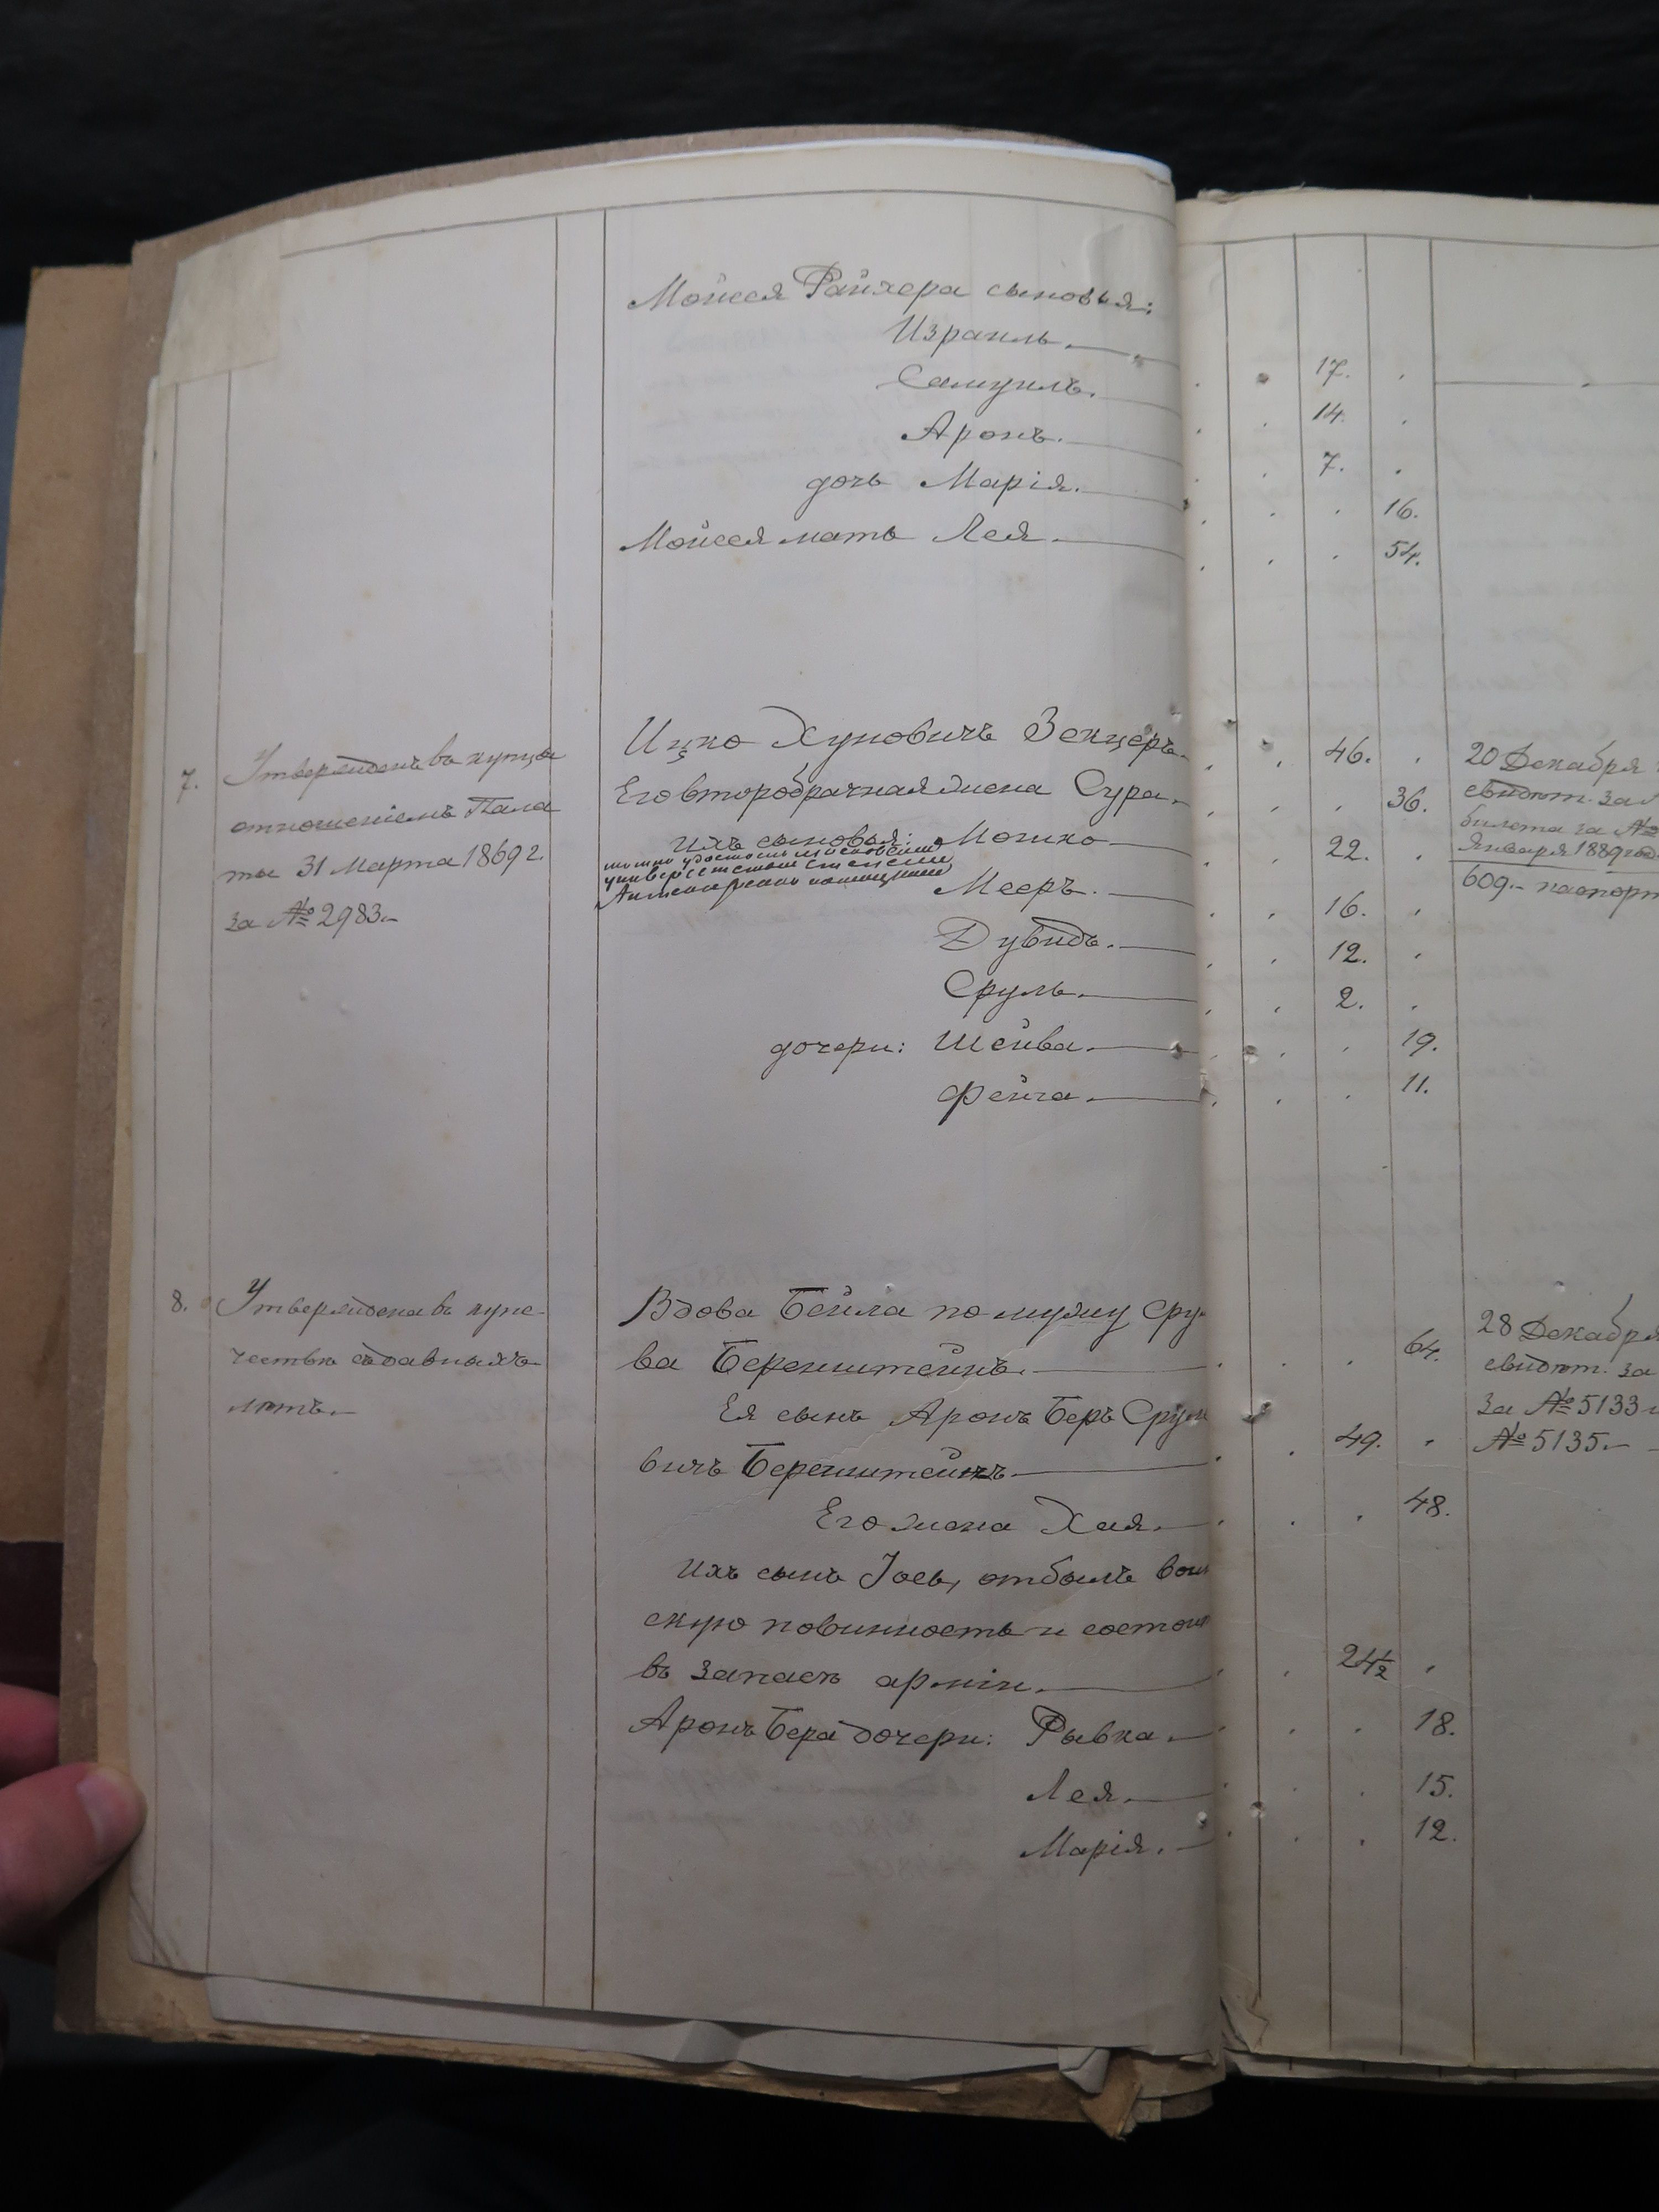 Мойсея Райхера сыновья:
Израиль. 17.
Самуилъ. 14.
Аронъ. 7.
дочь Марія. 16.
Мойсея мать Лея. 54.
7. Утвержденъ въ купцы
отношеніемъ Пала
ты 31 Марта 1869 г.
за № 2983.
Ицко Хуновичъ Зекцеръ. 46.
Его второбрачная жена Сура. 36.
ихъ сыновья: Мошко 22.
университетомъ степени
Мееръ. 16.
Дувидъ. 12.
Сруль. 2.
дочери: Шейва. 19.
Фейга. 11.
20 Декабря
свидѣт. за
билета за №
Января 1889 год.
609.– паспорт
8. Утверждена въ купе-
чество съ давныхъ
лѣтъ.
Вдова Бейла по мужу Сру
ва Беренштейнъ. 64.
Ея сынъ Аронъ Беръ Сруле
вичъ Беренштейнъ 49.
Его жена Хая. 48.
Ихъ сынъ Іось, отбылъ воин
скую повинность и состоит
въ запасѣ арміи. 24½
Аронъ Бера дочери: Рывка. 18.
Лея. 15.
Марія. 12.
28 Декабря
свидѣт. за
за № 5133 и
№ 5135.